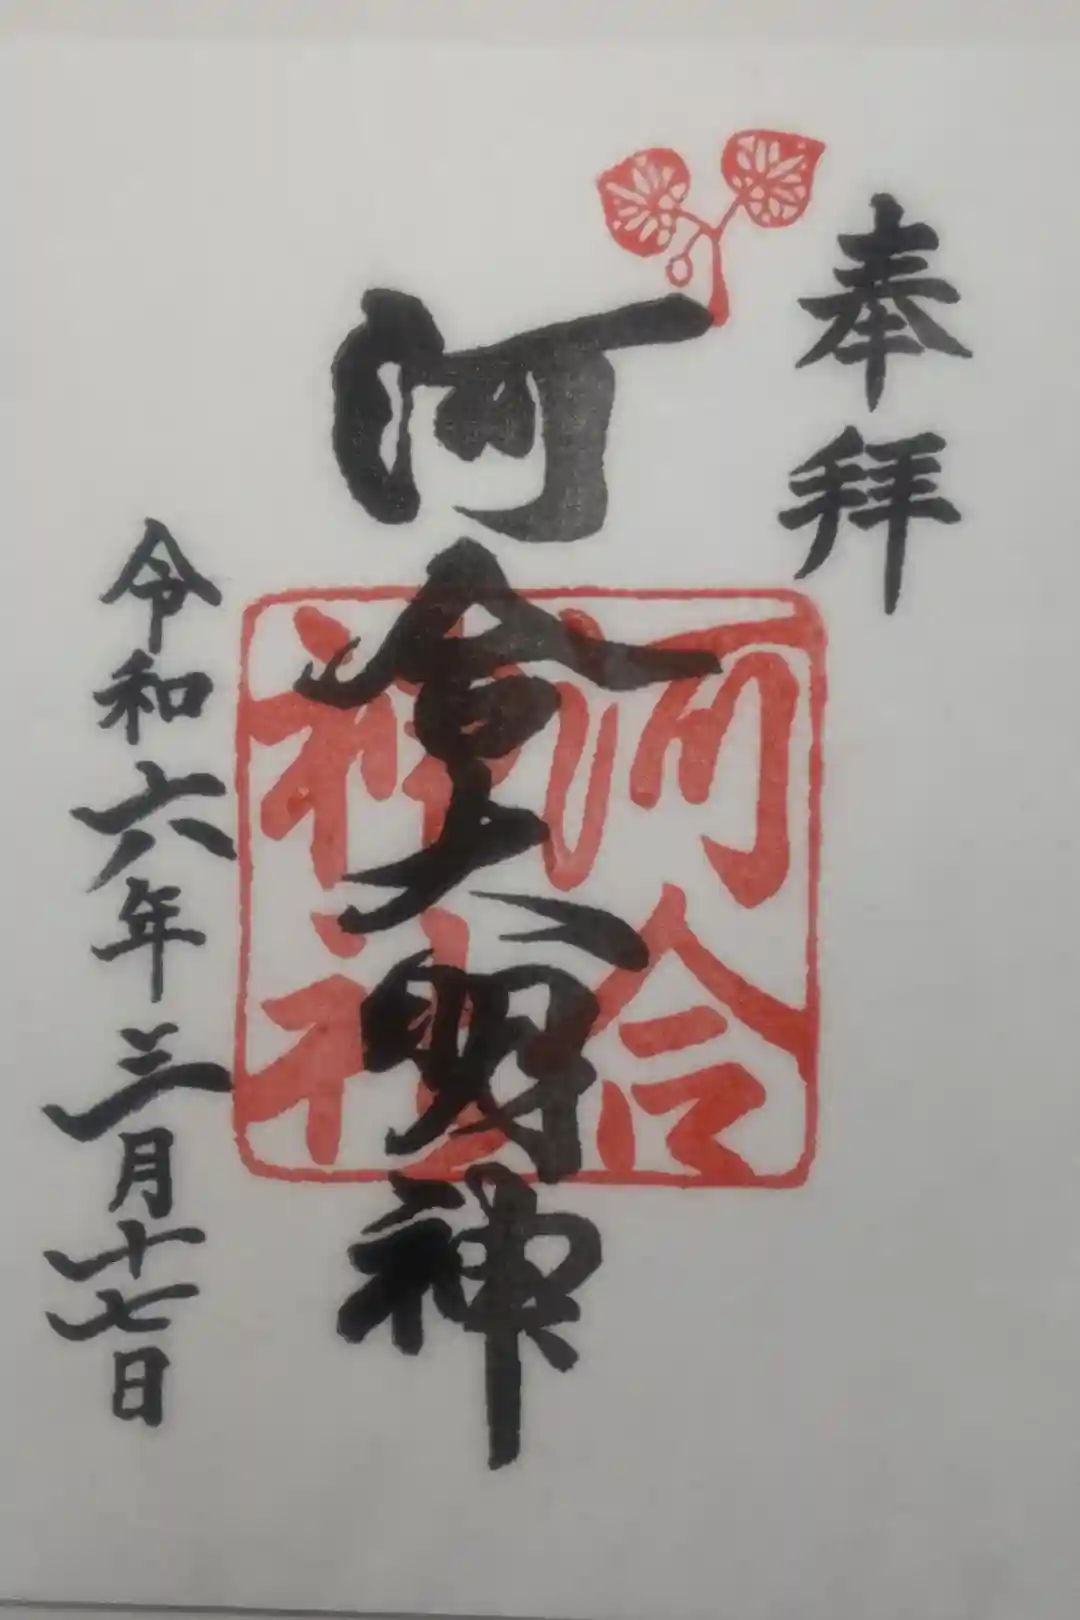 奉拝
河合大明神
河合
神社
令和六年三月十七日